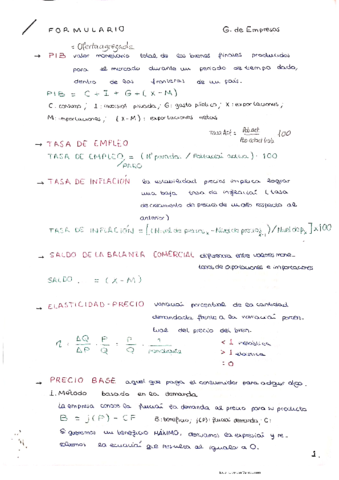 FORMULARIO G. de Empresas
= Oferta agregada
→ PIB valor monetario total de los bienes finales producidos
para el mercado durante un periodo de tiempo dado,
dentro de las fronteras de un país.
PIB = C + I + G + (X - M)
C: consumo; I: inversión privada; G: gasto público; X: exportaciones;
M: importaciones; (X - M): exportaciones netas
→ TASA DE EMPLEO
TASA DE EMPLEO = (Nº parados / Población activa) · 100
/PARO
→ TASA DE INFLACIÓN la estabilidad precios implica lograr
una baja tasa de inflación (tasa
de crecimiento de precios de un año respecto al
anterior)
→ SALDO DE LA BALANZA COMERCIAL diferencia entre valores mone-
tarios de exportaciones e importaciones
SALDO = (X - M)
→ ELASTICIDAD-PRECIO variación porcentual de la cantidad
demandada frente a la variación porcen-
tual del precio del bien.
η = ΔQ/ΔP · P/Q = P/Q · 1/pendiente
< 1 inelástica
> 1 elástica
= 0
→ PRECIO BASE aquel que paga el consumidor para adquirir algo.
1. Método basado en la demanda
La empresa conoce la función de demanda al precio para su producto
B = j(P) - CF B: beneficio; j(P): función demanda; C:
Si queremos un beneficio MÁXIMO, derivamos la expresión y
la ecuación que resulta al igualar a 0.
1.